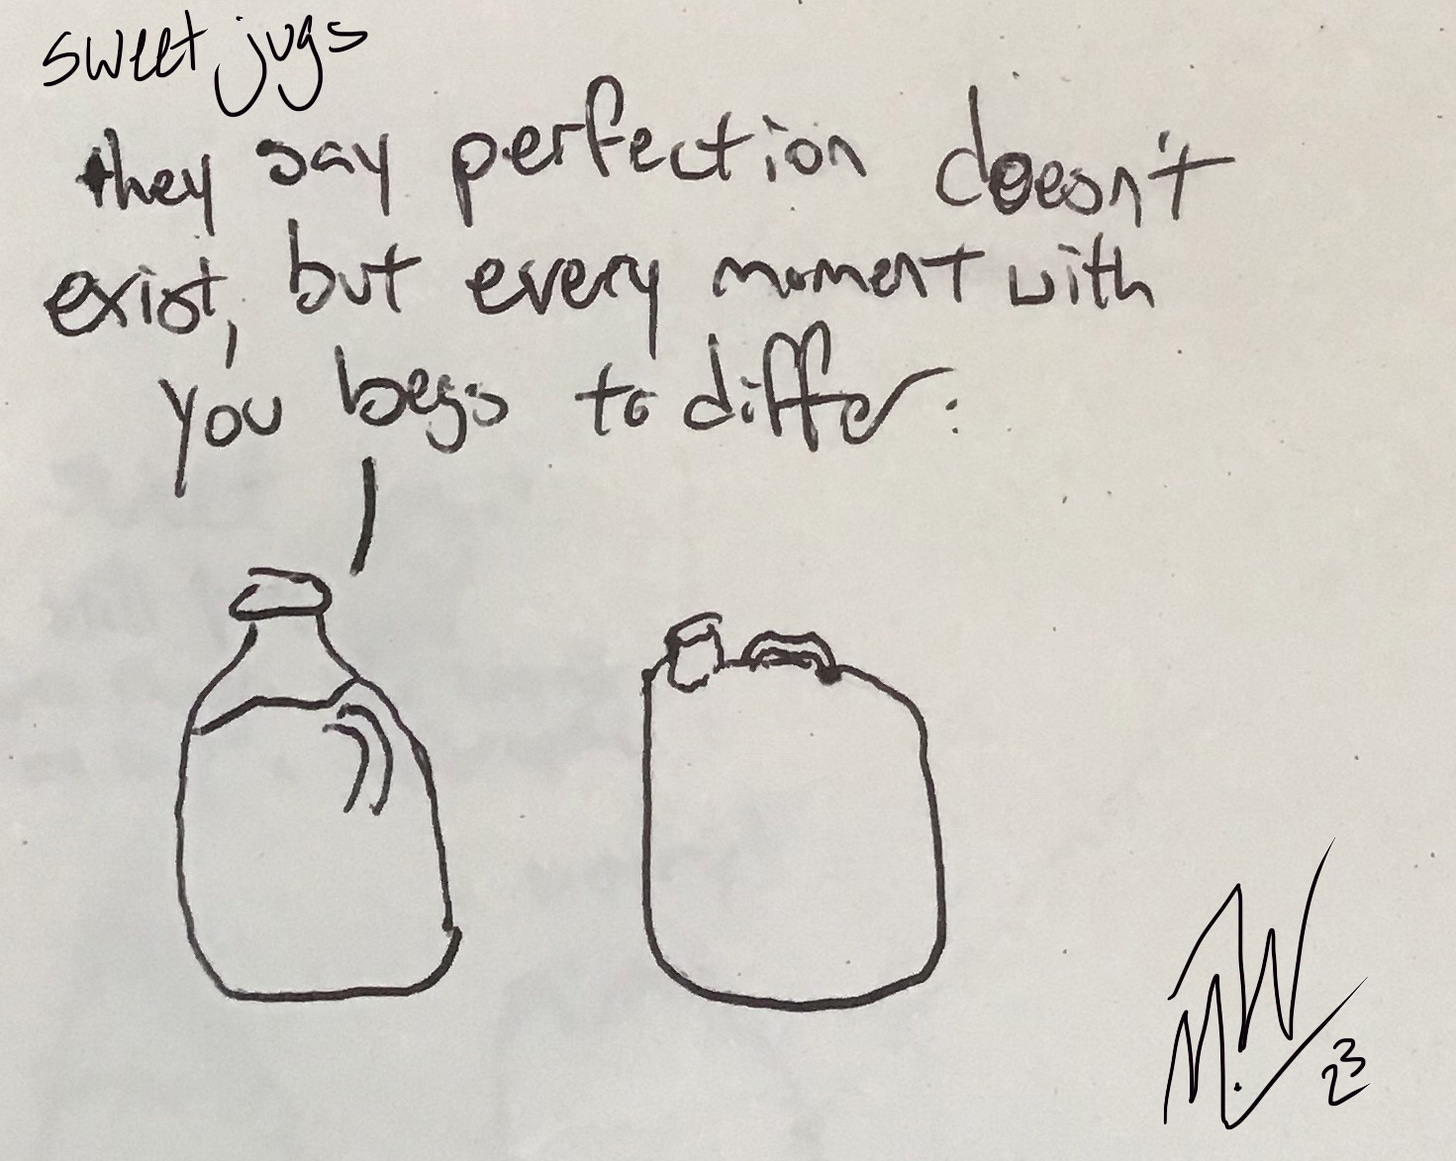 sweet jugs
they say perfection doesn't
exist, but every moment with
you begs to differ.
M.W
23